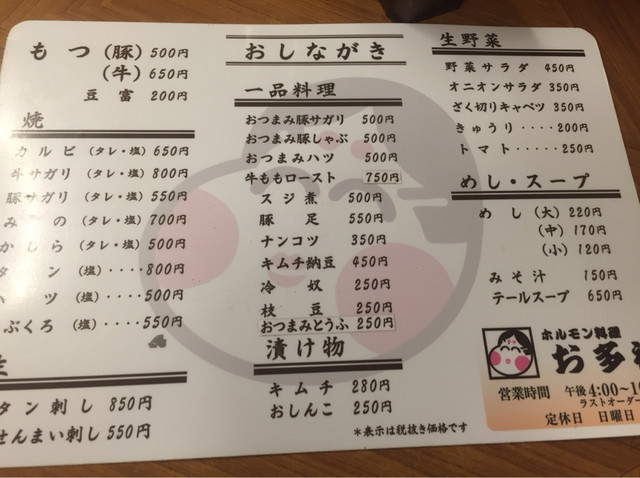 もつ（豚）500円
（牛）650円
豆富 200円
焼
カルビ（タレ・塩）650円
牛サガリ（タレ・塩）800円
豚サガリ（タレ・塩）550円
みの（タレ・塩）700円
かしら（タレ・塩）500円
タン（塩）････800円
ハツ（塩）････500円
ぶくろ（塩）････550円
生
タン刺し 850円
せんまい刺し 550円
おしながき
一品料理
おつまみ豚サガリ 500円
おつまみ豚しゃぶ 500円
おつまみハツ 500円
牛ももロースト 750円
スジ煮 500円
豚足 550円
ナンコツ 350円
キムチ納豆 450円
冷奴 250円
枝豆 250円
おつまみとうふ 250円
漬け物
キムチ 280円
おしんこ 250円
＊表示は税抜き価格です
生野菜
野菜サラダ 450円
オニオンサラダ 350円
ざく切りキャベツ 350円
きゅうり････200円
トマト････250円
めし・スープ
めし（大）220円
（中）170円
（小）120円
みそ汁 150円
テールスープ 650円
ホルモン料理
お多
営業時間 午後4:00〜1
ラストオーダー
定休日 日曜日